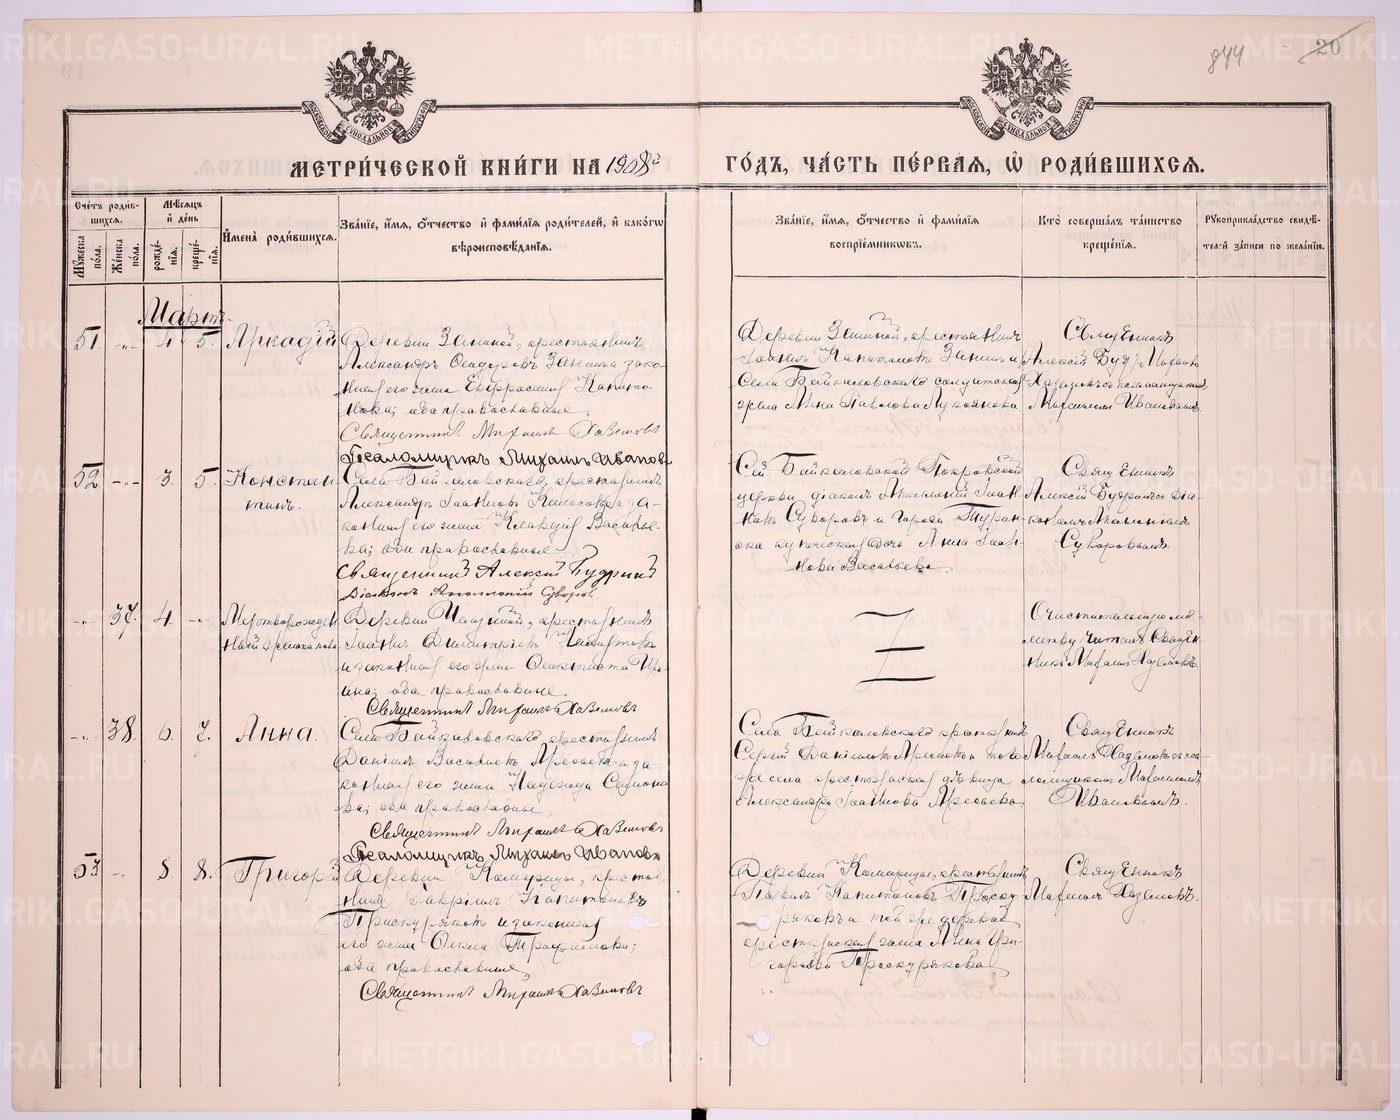 844
20
МЕТРИ́ЧЕСКОЙ КНИ́ГИ НА 1908й
ГО́ДЪ, ЧА́СТЬ ПЕ́РВАЯ, Ѡ҆ РОДИ́ВШИХСЯ.
Сче́тъ роди́вшихся.
Мѣ́сяцъ и҆ де́нь
Мꙋ́жеска по́ла.
Же́нска по́ла.
рожде́нїя.
креще́нїя.
И҆мена̀ роди́вшихся.
Зва́нїе, и҆́мя, ѻ҆́тчество и҆ фами́лїя роди́телей, и҆ како́гѡ
вѣроисповѣ́данїя.
Зва́нїе, и҆́мя, ѻ҆́тчество и҆ фами́лїя
воспрїе́мникѡвъ.
Кто̀ соверша́лъ та́инство
креще́нїя.
Рꙋкоприкла́дство свидѣ́-
телей за́писи по жела́нїю.
Мартъ
51. -"- 4. 5. Аркадій
Деревни Заниной, крестьянинъ
Александръ Ѳедоровъ Занинъ и зако-
нная его жена Евфросинія Капито-
нова; оба православные.
Священникъ Михаилъ Хаземовъ
Псаломщикъ Михаилъ Ивановъ
Деревни Заниной, крестьянинъ
Іоаннъ Капитоновъ Занинъ и
Села Байкаловскаго солдатская
жена Анна Павлова Лукоянова
Священникъ
52. -"- 3. 5. Констан-
тинъ.
Села Байкаловскаго, крестьянинъ
Александръ Іоанновъ
конная его жена Клавдія Василье-
ва; оба православные
Священникъ Алексій Будринъ
Діаконъ Аполлоній Суворовъ.
Сей Байкаловской Покровской
церкви діаконъ Аполлоній Іоан-
новъ Суворовъ и города Турин-
ска купеческая дочь Анна Іоан-
нова Васильева.
Священникъ
Алексій Будринъ съ діа-
кономъ Аполлоніемъ
Суворовымъ.
-"- 37. 4. -"- Мертворожден-
ный женска пола
Іоаннъ Димитріевъ
и законная его жена
оба православные.
Священникъ Михаилъ Хаземовъ
Очистительную мо-
литву читалъ Священ-
никъ Михаилъ Хаземовъ
-"- 38. 6. 7. Анна.
Села Байкаловскаго, крестьянинъ
Даніилъ Васильевъ и за-
конная его жена Надежда
ва; оба православные.
Священникъ Михаилъ Хаземовъ
Псаломщикъ Михаилъ Ивановъ
Села Байкаловскаго крестьянинъ
Сергій Даніиловъ и того
же села крестьянская дѣвица
Александра Іоаннова
Священникъ
Михаилъ Хаземовъ съ пса-
ломщикомъ Михаиломъ
Ивановымъ.
53 -"- 8. 8. Григорій
Деревни Комарицы, крестья-
нинъ Гавріилъ Капитоновъ
Проскуряковъ и законная
его жена Ѳекла Трофимова;
оба православные
Священникъ Михаилъ Хаземовъ
Деревни Комарицы, крестьянинъ
Павелъ Капитоновъ Проску-
ряковъ и той же деревни
крестьянская жена Анна Гри-
горьева Проскурякова
Священникъ
Михаилъ Хаземовъ.
METRIKI.GASO-URAL.RU